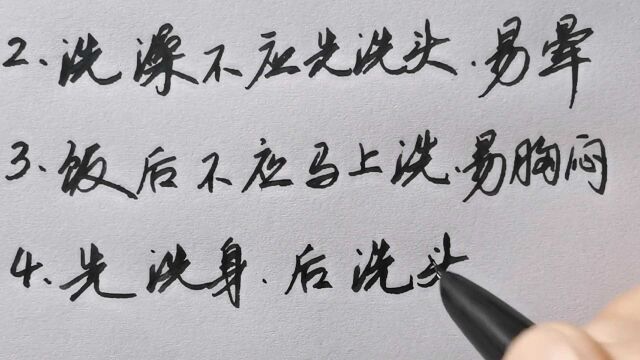 2.洗澡不应先洗头.易晕
3.饭后不应马上洗.易胸闷
4.先洗身.后洗头